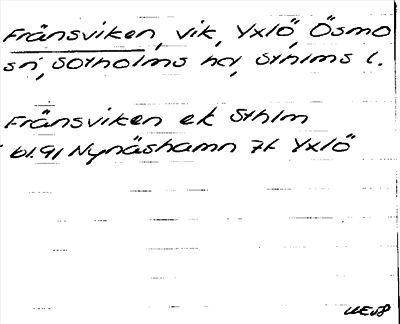 Fränsviken, vik, Yxlö, Ösmo
sn, Sotholms hd, Sthlms l.
Fränsviken ek Sthlm
bl.91 Nynäshamn 7f Yxlö